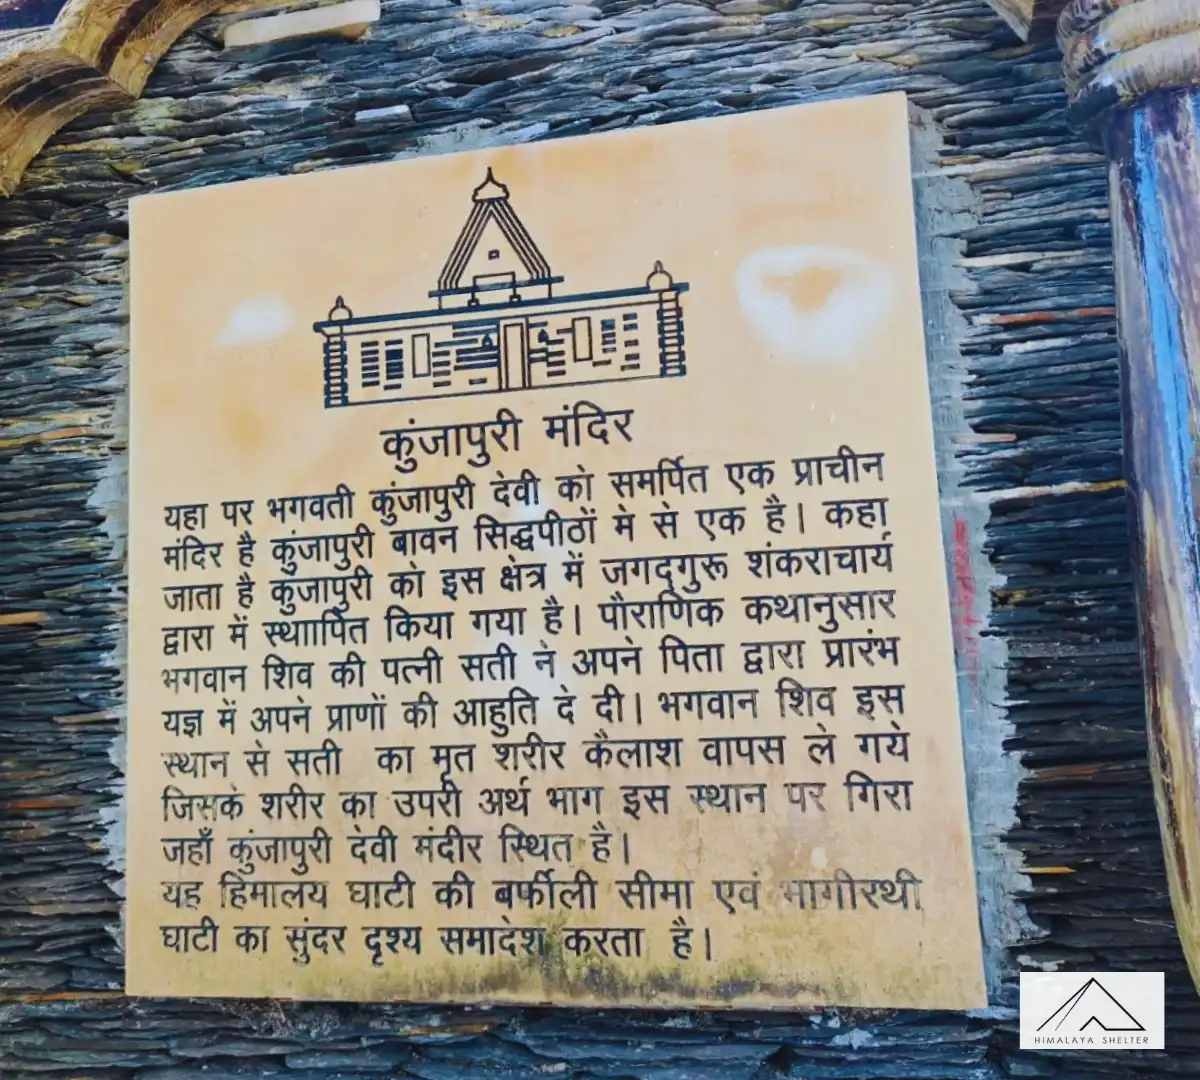 कुंजापुरी मंदिर
यहा पर भगवती कुंजापुरी देवी को समर्पित एक प्राचीन
मंदिर है कुंजापुरी बावन सिद्धपीठों मे से एक है। कहा
जाता है कुंजापुरी को इस क्षेत्र में जगद्गुरू शंकराचार्य
द्वारा में स्थाार्पित किया गया है। पौराणिक कथानुसार
भगवान शिव की पत्नी सती ने अपने पिता द्वारा प्रारंभ
यज्ञ में अपने प्राणों की आहुति दे दी। भगवान शिव इस
स्थान से सती का मृत शरीर कैलाश वापस ले गये
जिसके शरीर का उपरी अर्थ भाग इस स्थान पर गिरा
जहाँ कुंजापुरी देवी मंदीर स्थित है।
यह हिमालय घाटी की बर्फीली सीमा एवं भागीरथी
घाटी का सुंदर दृश्य समादेश करता है।
HIMALAYA SHELTER